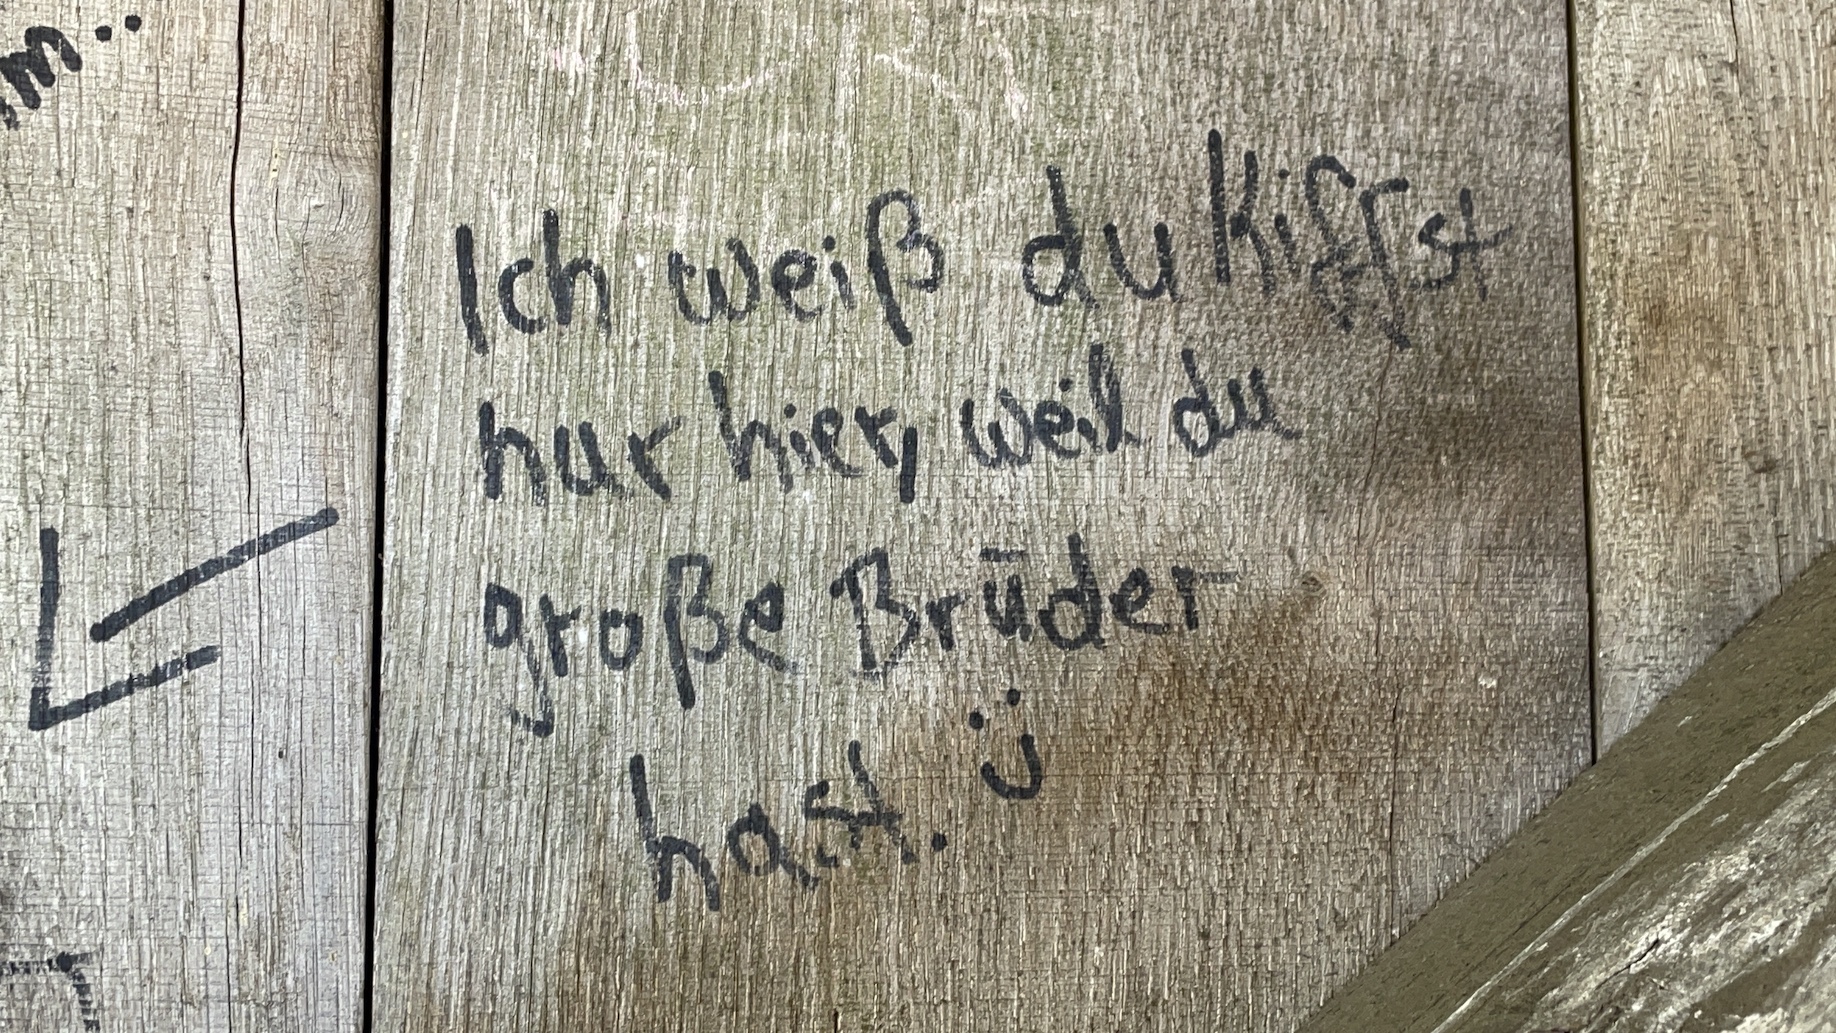 Ich weiß du Kiffst
nur hier, weil du
große Brüder
hast. :)